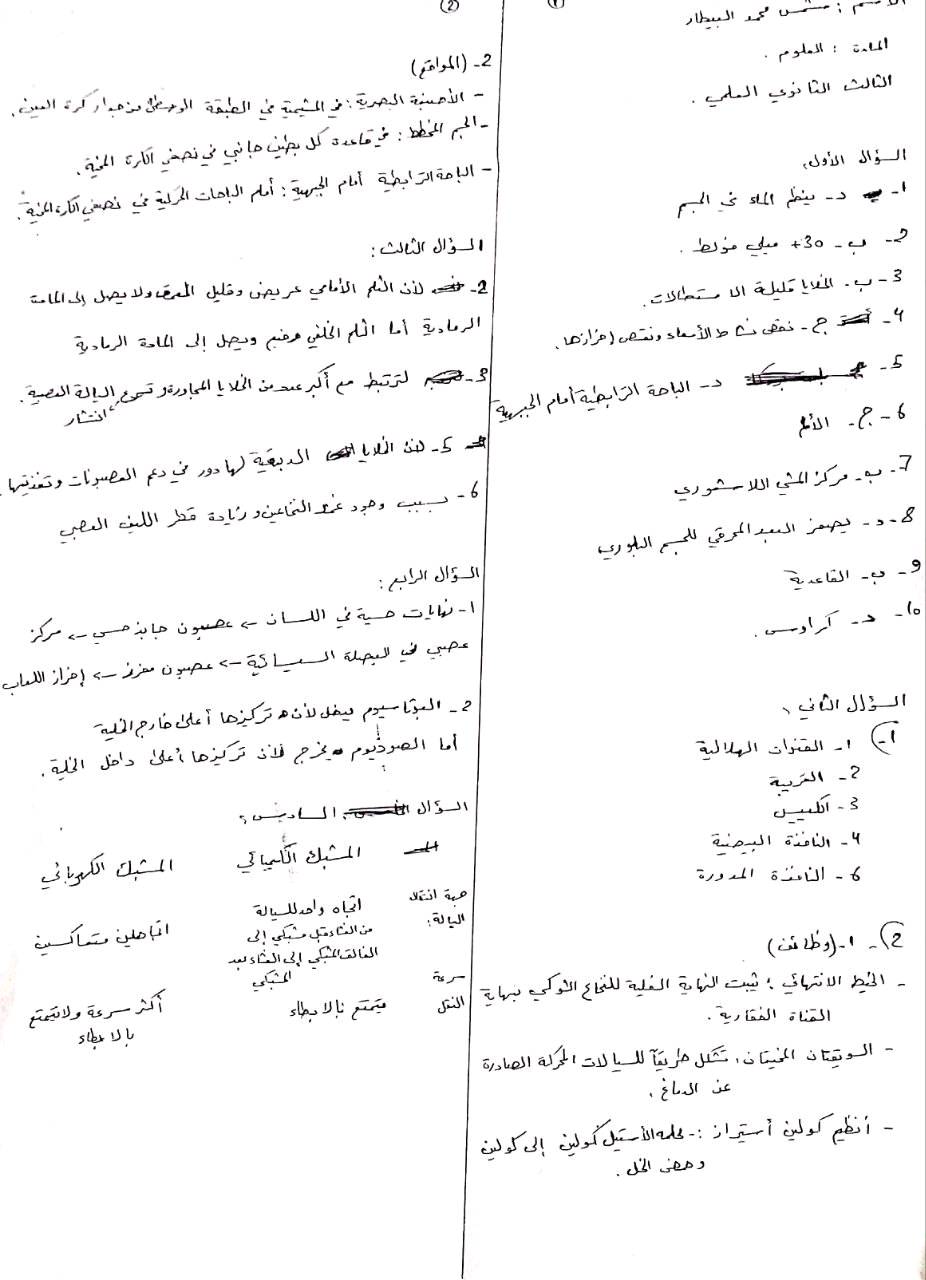 (1)
الاسم : شمس محمد البيطار
المادة : العلوم .
الثالث الثانوي العلمي .
السؤال الأول :
1- د- ينظم الماء في الجسم
2- ب- 30+ ميلي فولط .
3- ب- الخلايا قليلة الاستطالات .
4- ج- نقص نشاط الأمعاء ونقص إفرازها .
5- د- الباحة الرابطية أمام الجبهية
6- ج- الألم
7- ب- مركز المشي اللاشعوري
8- د- يصغر البعد المحرقي للجسم البلوري
9- ب- القاعدية
10- د- كراوس .
السؤال الثاني :
1- 1- القنوات الهلالية
2- القريبة
3- الكييس
4- النافذة البيضية
6- النافذة المدورة
2- 1- (وظائف)
- الخيط الانتهائي : تثبت النهاية السفلية للنخاع الشوكي بنهاية
القناة الفقارية .
- السويقتان المخيتان : تشكل طريقاً للسيالات المحركة الصادرة
عن الدماغ .
- أنظيم كولين أستيراز :- حلمه الأستيل كولين إلى كولين
وحمض الخل .
(2)
2- (المواقع)
- الأصبغة البصرية : في المشيمية في الطبقة الوسطى من جدار كرة العين .
- الجسم المخطط : في قاعدة كل بطين جانبي في نصفي الكرة المخية .
- الباحة الرابطية أمام الجبهية : أمام الباحات الحركية في نصفي الكرة المخية .
السؤال الثالث :
2- لأن الثلم الأمامي عريض وقليل العمق ولا يصل إلى المادة
الرمادية أما الثلم الخلفي وضيق ويصل إلى المادة الرمادية
3- لترتبط مع أكبر عدد من الخلايا المجاورة و تسرع انتشار السيالة العصبية .
5- لأن الخلايا الدبقية لها دور في دعم العصبونات وتغذيتها .
6- بسبب وجود غمد النخاعين و زيادة قطر الليف العصبي
السؤال الرابع :
1- نهايات حسية في اللسان -> عصبون جابذ حسي -> مركز
عصبي في البصلة السيسائية -> عصبون مفرز -> إفراز اللعاب
2- البوتاسيوم يدخل لأن تركيزها أعلى خارج الخلية
أما الصوديوم يخرج لأن تركيزها أعلى داخل الخلية .
السؤال السادس :
المشبك الكيميائي المشبك الكهربائي
جهة انتقال السيالة: اتجاه واحد للسيالة من الغشاء قبل مشبكي إلى الفالق المشبكي إلى الغشاء بعد المشبكي اتجاهين متعاكسين
سرعة النقل يتمتع بالإبطاء أكثر سرعة ولا تتمتع بالإبطاء